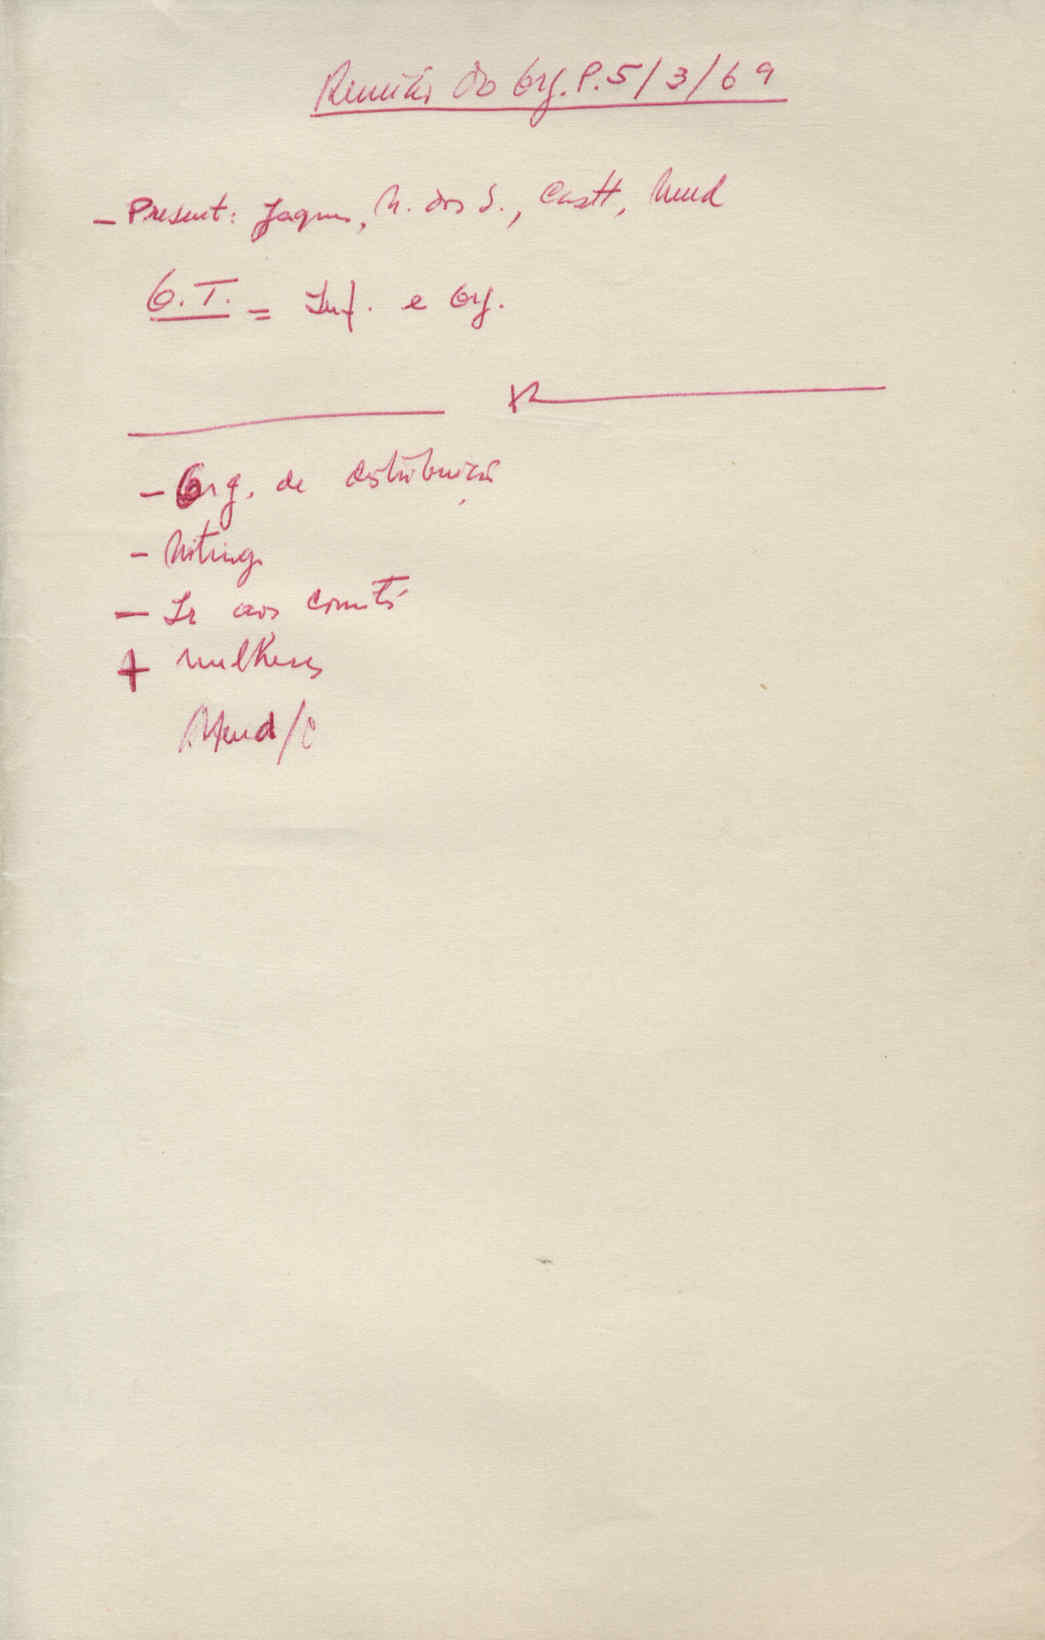 Reunião do Org. P. 5/3/69
- Present: Jaquim, M. dos S., Castt, Mend
O.T. = Inf. e Org.
- Org. de distribuição
- Miting
- Ir aos comités
+ mulheres
Mend/C